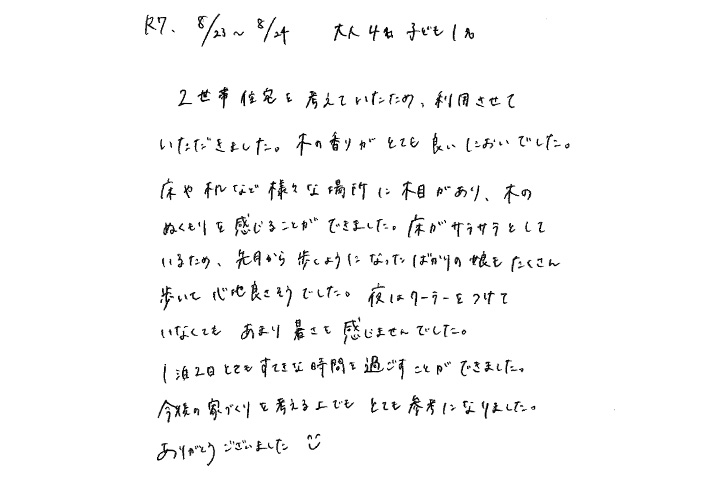 R7. 8/23～8/24 大人4名 子ども1名
2世帯住宅を考えていたため、利用させて
いただきました。木の香りがとても良いにおいでした。
床や机など様々な場所に木目があり、木の
ぬくもりを感じることができました。床がサラサラとして
いるため、先月から歩くようになったばかりの娘もたくさん
歩いて心地良さそうでした。夜はクーラーをつけて
いなくてもあまり暑さを感じませんでした。
1泊2日とてもすてきな時間を過ごすことができました。
今後の家づくりを考える上でもとても参考になりました。
ありがとうございました